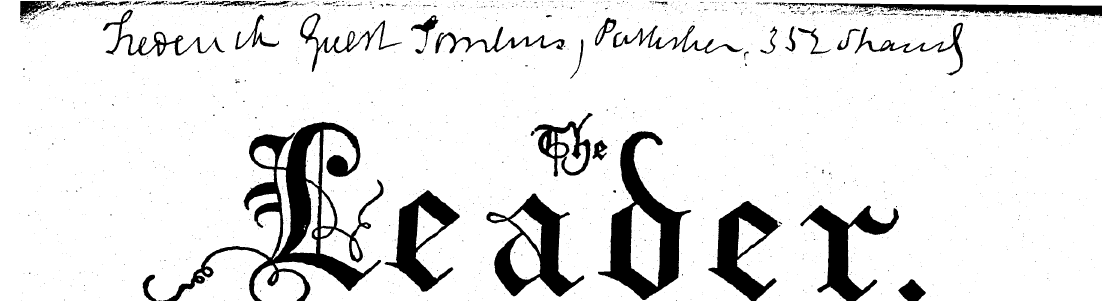 Frederick Guest Tomlins, Publisher, 352 Strand
The
Leader.